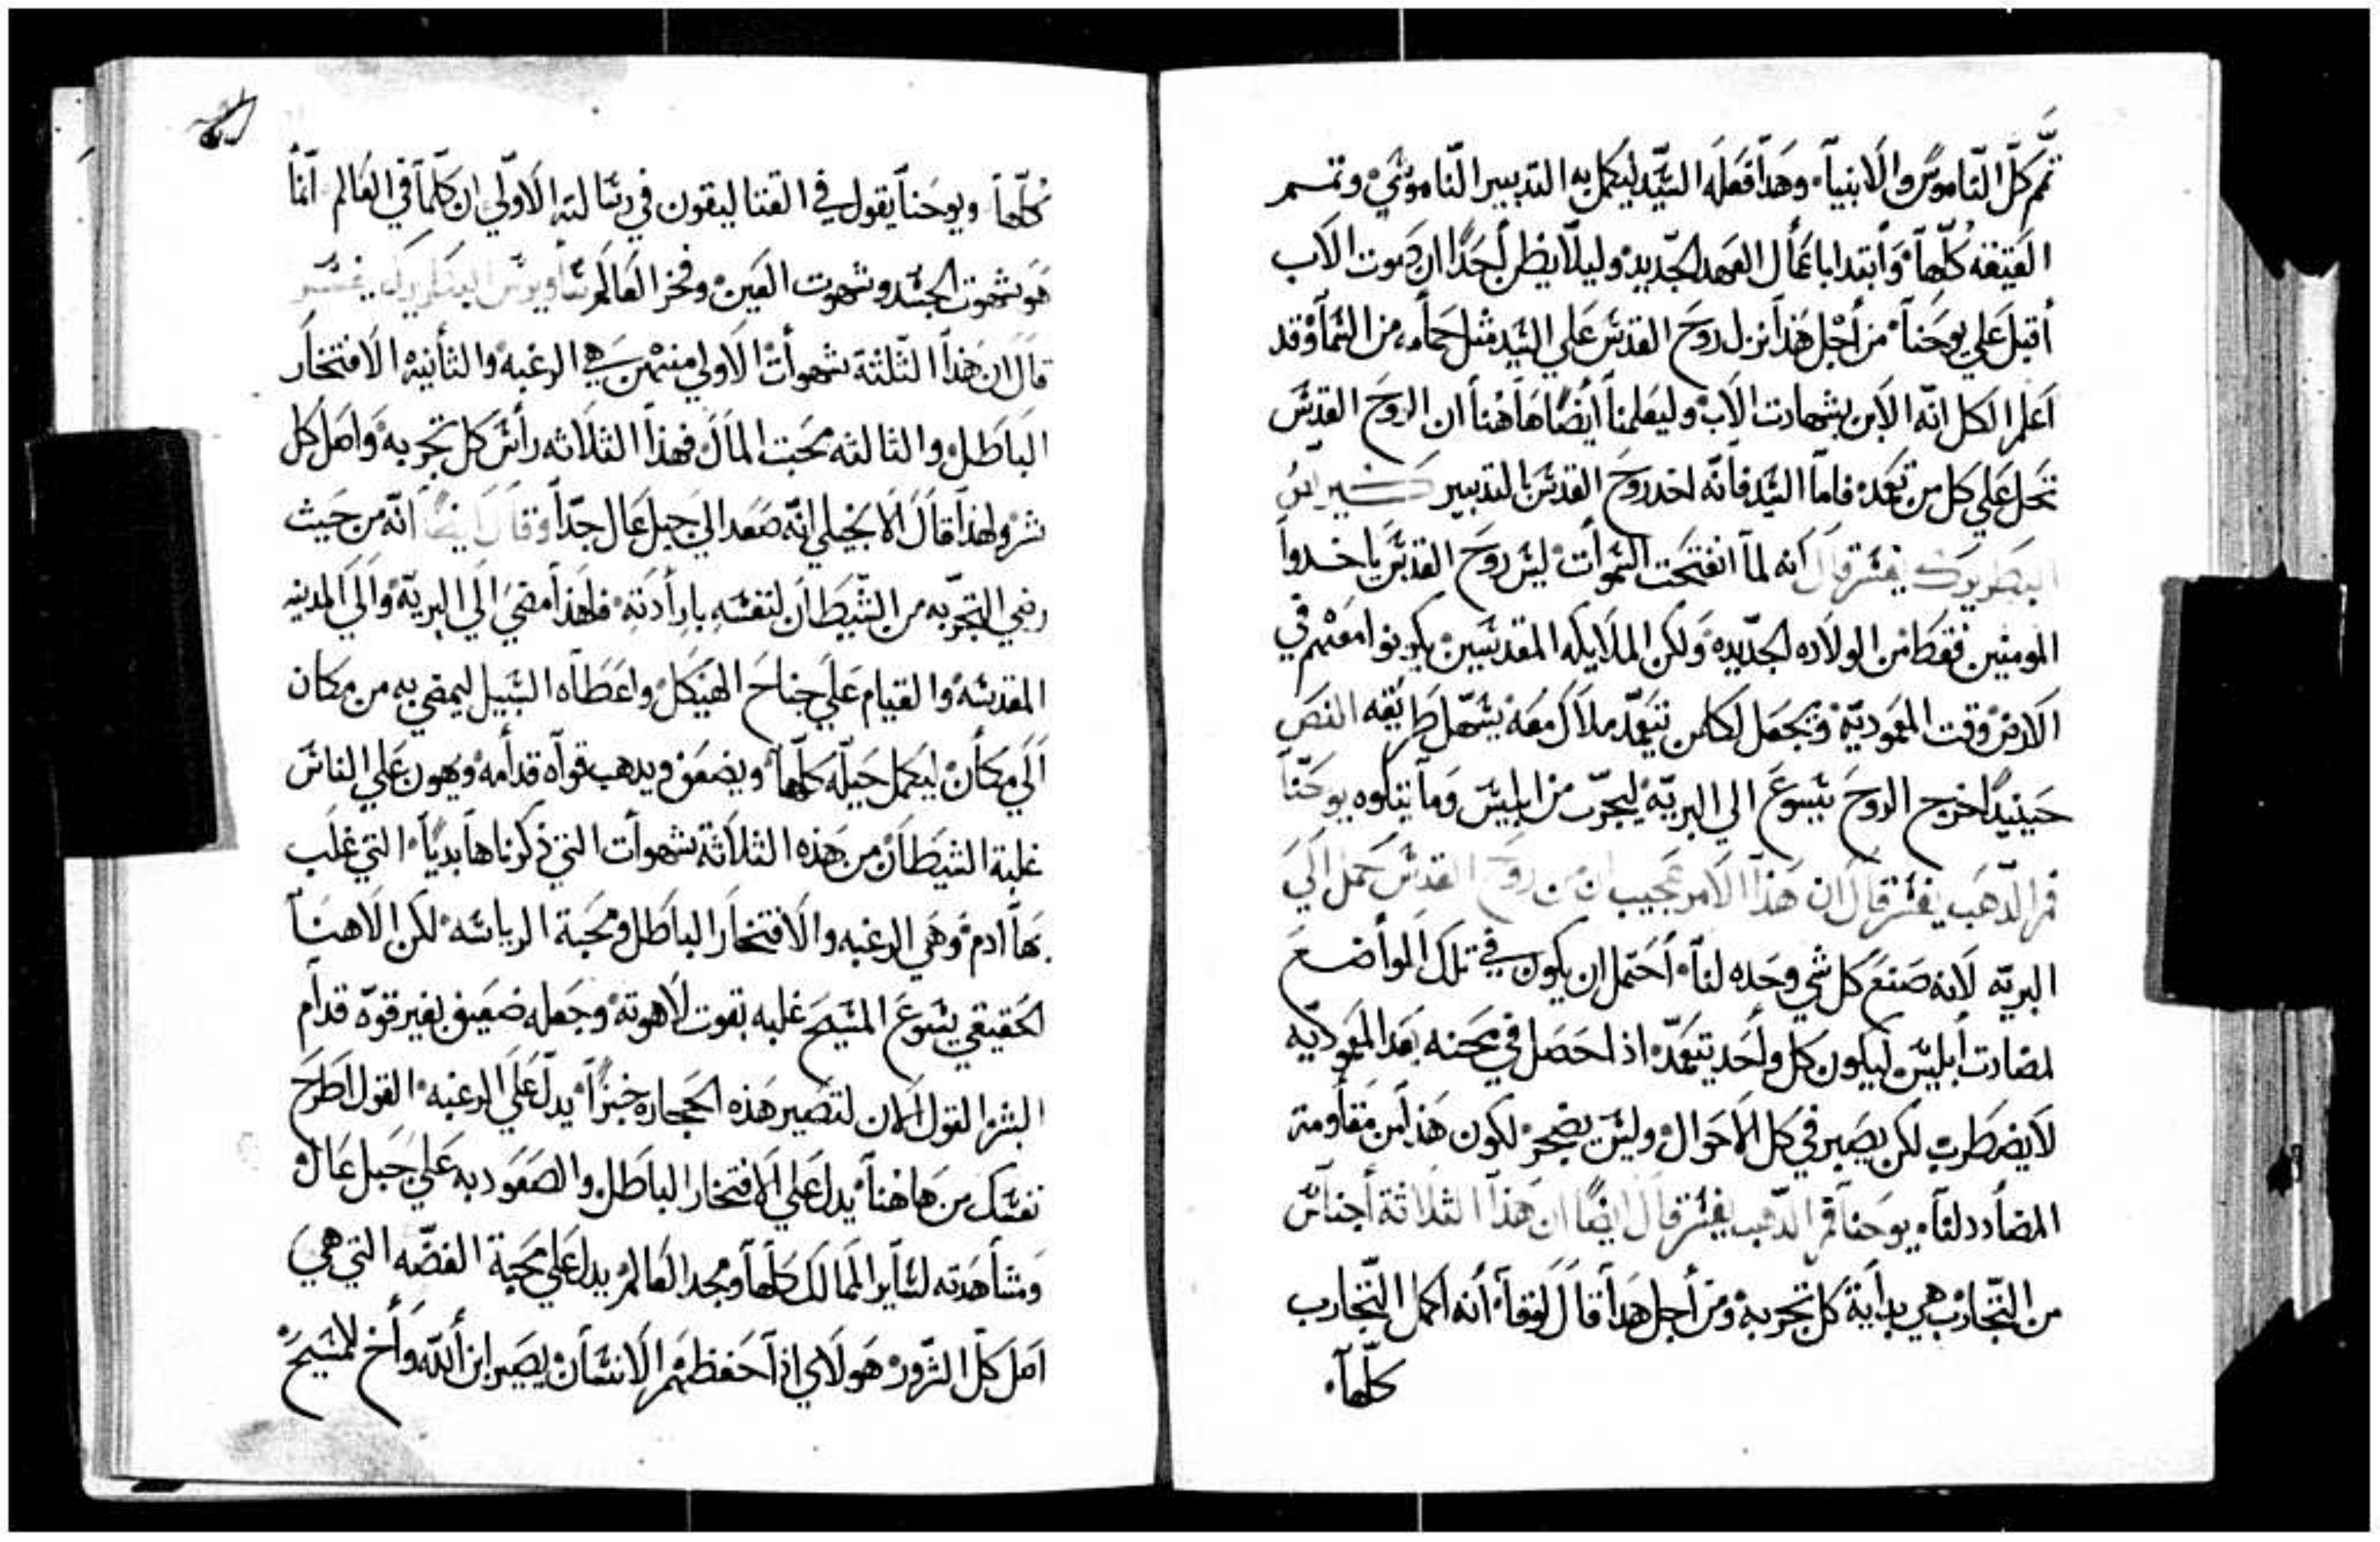 تمّم كلّ النّاموس والانبيآ۰ وهدا فعله السّيّد ليكمل به التدبير النّاموسي۰ وتمم
العتيقه كلّها۰ وابتدا باعمال العهد الجديد۰ وليلّا يظن احدا ان صوت الاب
أقبل علي يوحنا۰ من أجل هذا نزل روح القدس علي السّيد مثل حمامه من السّما۰ وقد
اعلم الكل انّه الابن بشهادت الاب۰ وليعلمنا أيضًا هاهنا ان الروح القدس
تحل علي كل من تعمد۰ فاما السّيد فأنّه اخد روح القدس بالتدبير
البطريرك يفسّر قال انه لمّا انفتحت السّموات۰ ليس روح القدس ياخدوا
المومنين فقط من الولاده الجديده۰ ولكن الملايكه المقدسين يكونوا معهم في
الارض وقت المعموديّة۰ ويجعل لكل من يتعمّد ملاك معه۰ يسهّل طريقه النص
حينيدًا اخرج الروح يسوع الي البريّه۰ ليجرّب من ابليس وما يتلوه يوحنّا
فم الدّهب يفسّر قال ان هذا الامر عجيب ان من روح القدس حمل الي
البريّه لانه صنع كل شي وحده لنا۰ احتمل ان يكون في تلك المواضع
لمضادت أبليس۰ ليكون كل واحد يتعمّد۰ اذا حصل في محنه بعد المعموديّه
لا يضطرب لكن يصبر في كل الاحوال۰ وليس يضجر۰ لكون هذا من مقاومة
المضادد لنا۰ يوحنا فم الدّهب يفسّر قال ايضًا ان هذا الثلاثة أجناس
من التّجارب هي بداية كل تجربه۰ ومن أجل هدا قال لوقا۰ أنه اكمل التّجارب
كلّها۰
كلّها۰ ويوحنا يقول في القتاليقون في رسالته الاوّلي ان كلّما في العالم انّما
هو شهوت الجسد وشهوت العين۰ وفخر العالم ساويرس البطريرك يفسّر
قال ان هذا الثّلثة شهوات الاولي منهم هي الرغبه۰ والثانيه الافتخار
الباطل۰ والثالثه محبت المال۰ فهذا الثلاثه راس كل تجربه۰ واصل كل
شر۰ ولهذا قال الانجيلي انّه صعد الي جبل عال جدّا وقال ايضًا انّه من حيث
رضي التجرّبه من الشّيطان لنفسه بارادته۰ فلهذا مضي الي البريّه۰ والي المدينه
المقدسّه۰ والقيام علي جناح الهيكل۰ واعطاه السّبيل ليمضي به من مكان
الي مكان۰ ليكمل حيلّه كلّها۰ ويضعف ويدهب قواه قدامه۰ ويهون علي الناس
غلبة الشيطان من هذه الثلاثة شهوات التي ذكرناها بديّا۰ التي غلب
بها ادم۰ وهي الرغبه والافتخار الباطل ومحبة الرياسّه۰ لكن الاهنا
الحقيقي يسوع المسّيح غلبه بقوت لاهوته۰ وجعله ضعيف بغير قوّه قدام
البشر۰ القول الان لتصير هذه الحجاره خبزًا۰ يدلّ علي الرغبه۰ القول اطرح
نفسّك من هاهنا۰ يدل علي الافتخار الباطل۰ والصعود به علي جبل عال۰
ومشاهدته لسّاير الممالك كلّها ومجد العالم۰ يدل علي محبة الفضّه التي هي
اصل كلّ الشّرور۰ هولاي اذا حفظهم الانسّان۰ يصير ابن اللّه۰ وأخ للمسّيح۰